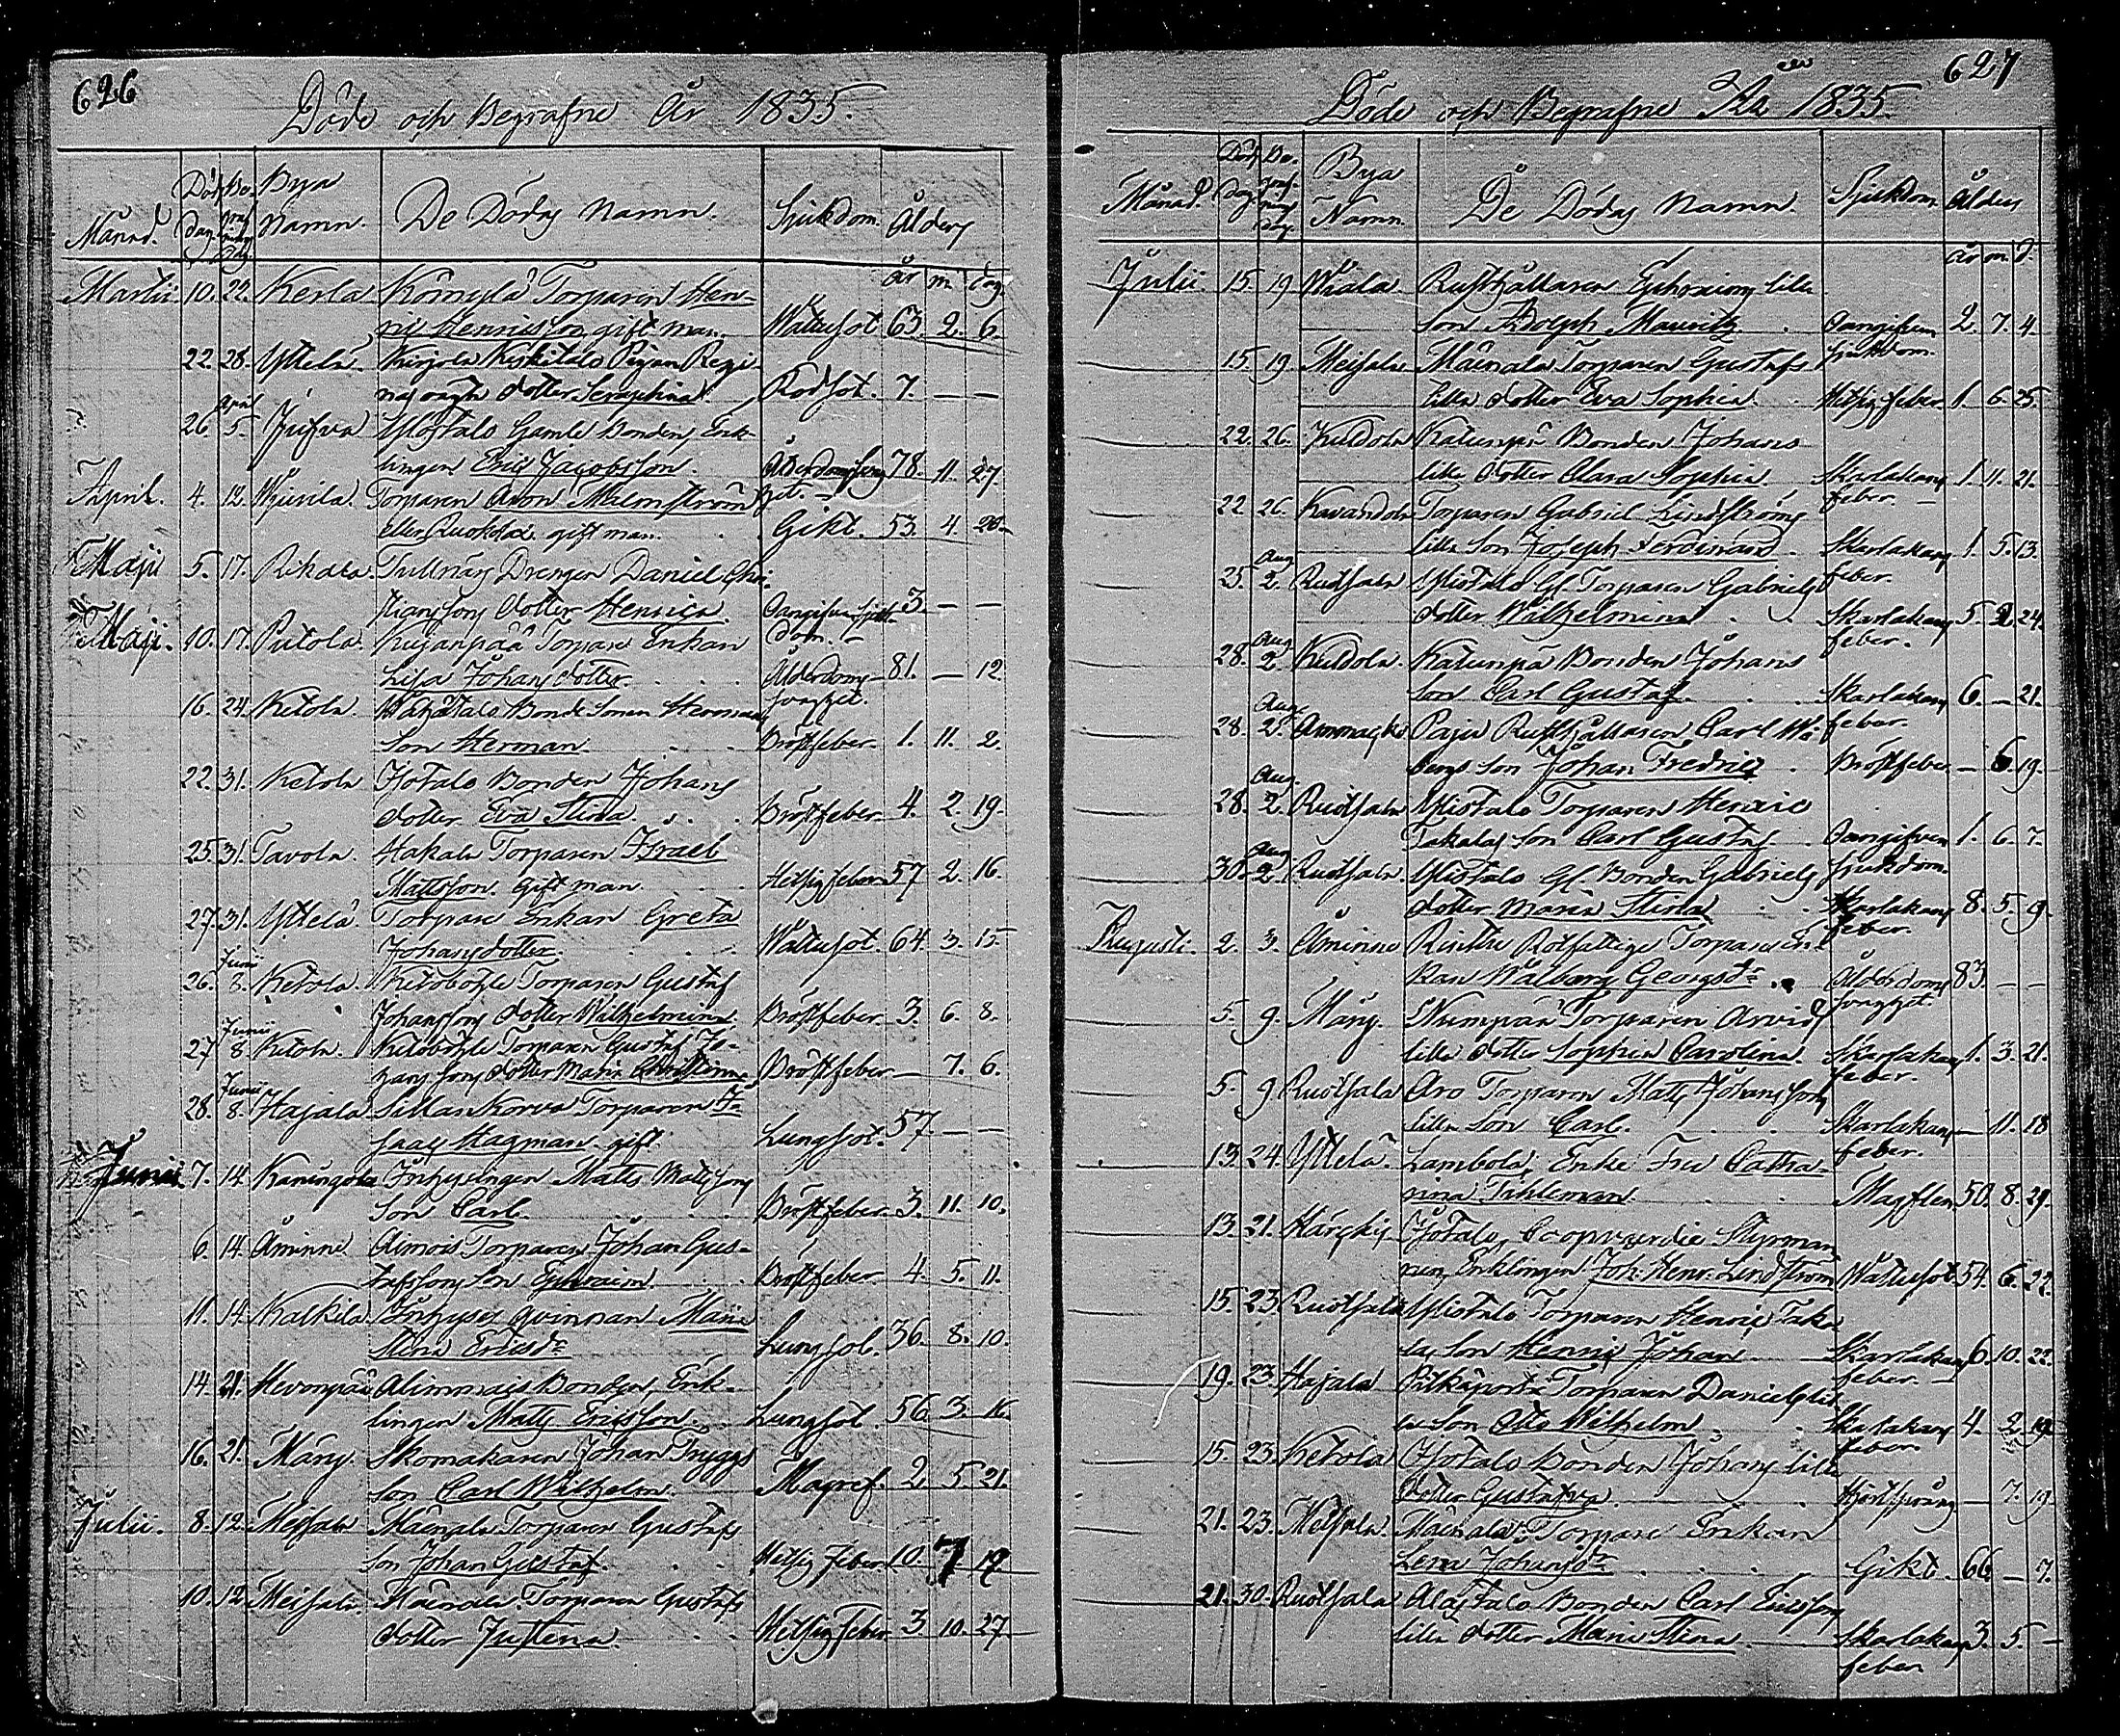 626
Döde och Begrafne År 1835.
Månad. Döds Dag Be-grafnings Dag Bya Namn. De Dödas Namn. Sjukdom. Ålder
år m. dag.
Martii 10. 22. Kerla Torparen Hen-
ric Henricsson gift man Wattusot 63. 2. 6.
22. 28. Yttelä Pigan Regi-
nas oägta dotter Seraphina Rödsot. 7. — —
April
26. 5. Gamle Bonden, Enk-
lingen Eric Jacobsson. 78. 11. 27.
April. 4. 12. Torparen Aron Malmström
eller gift man. Gikt. 53. 4. 20.
Maji 5. 17. Rikala Drengen Daniel Chri-
stianssons dotter Henrica Oangifven sjuk- 3. — —
dom.
Maji. 10. 17. Torpare Enkan
Lisa Johans dotter. Ålderdoms- 81. — 12.
16. 24. Ketola. Bonde Sonen Hermans
Son Herman. Bröstfeber. 1. 11. 2.
22. 31. Ketola Isotalo Bonden Johans
dotter Eva Stina. Bröstfeber. 4. 2. 19.
25. 31. Tavola. Hakala Torparen Israel
Mattsson. gift man. Hetsig feber 57 2. 16.
27. 31. Yttelä Torpare Enkan Greta
Johansdotter. Wattusot. 64. 3. 15.
Junii
26. 8. Ketola. Torparen Gustaf
Johanssons dotter Wilhelmina Bröstfeber. 3. 6. 8.
Junii
27 8. Ketola. Torparen Gustaf Jo-
hanssons dotter Maria Christina Bröstfeber — 7. 6.
Junii
28. 8. Hajala Torparen I-
saac Hagman gift Lungsot. 57 — —
Junii 7. 14. Inhysingen Matts Matssons
Son Carl. Bröstfeber. 3. 11. 10.
6. 14. Åminne Torparen Johan Gus-
tafssons son Ephraim Bröstfeber 4. 5. 11.
11. 14. Kalkila Inhyses qvinnan Maria
Stina Ericsdr Lungsot. 36. 8. 10.
14. 21. Hevonpää Bonden, Enk-
lingen Matts Ericsson. Lungsot. 56. 3. 16.
16. 21. Märy. Skomakaren Johan Tryggs
son Carl Wilhelm. Magref. 2. 5. 21.
Julii. 8. 12. Meisala Mäenala Torparen Gustafs
Son Johan Gustaf. Hetsig feber 10. 7 19.
10. 12 Meisala. Mäenala Torparen Gustafs
dotter Justina. Hetsig feber 3 10. 27
627
Döde och Begrafne År 1835.
Månad. Döds dag Be-grafnings dag. Bya Namn. De Dödas Namn. Sjukdom. Ålder
år m. d.
Julii. 15. 19 Wiala Rusthållaren Ephraims lilla
son Adolph Mauritz Oangifven 2. 7. 4
sjukdom.
15. 19 Meisala Mäenala Torparen Gustafs
lilla dotter Eva Sophia. Hetsig feber. 1. 6. 25.
22. 26. Kuddola Katunpä Bonden Johans
lilla dotter Clara Sophia Skarlakans 1. 11. 21.
feber.
22 26. Kavandola Torparen Gabriel Lindströms
lilla Son Joseph Ferdinand. Skarlakans 1. 5. 13.
feber.
Aug
25. 2. Ruotsala Ylistalo Gl. Torparen Gabriels
dotter Wilhelmina Skarlakans 5. 2. 24.
feber.
Aug
28. 2. Kuddola. Katunpä Bonden Johans
Son Carl Gustaf. Skarlakans 6. — 21.
feber.
Aug.
28. 2. Paju Rusthållaren Carl Wi-
bergs son Johan Fredric Bröstfeber. — 6. 19.
Aug.
28. 2. Ruotsala Ylistalo Torparen Henric
Takalas son Carl Gustaf Oangifven 1. 6. 7.
sjukdom.
Aug
30. 2. Ruotsala. Ylistalo Gl. Bonden Gabriels
dotter Maria Stina Skarlakans 8. 5. 9.
feber.
Augusti. 2. 3. Åminne Rotfattige Torpare En-
kan Walborg Georgsdr. Ålderdoms 83. — —
5. 9. Märy. Torparen Arvids
lilla dotter Sophia Carolina. Skarlakans 1. 3. 21.
feber.
5. 9 Ruotsala Aro Torparen Matts Johanssons
lilla Son Carl. Skarlakans — 11. 18
feber.
13. 24. Yttelä. Lambola, Enke Fru Catha-
rina Tihleman Magflen 50. 8. 29.
13. 21. Isotalo, Coopverdie Styrman-
nen, Enklingen Joh: Henr. Lindström Wattusot 54. 6. 22.
15. 23. Ruotsala Ylistalo Torparen Henric Taka-
las son Henric Johan Skarlakans 6. 10. 22.
feber.
19. 23. Hajala Torparen Daniels lil-
la son Otto Wilhelm Skarlakans 4. 2. 19.
feber
15. 23. Ketola Isotalo Bonden Johans lilla
dotter Gustafva. — 7. 19.
21. 23. Meisala. Mäenala Torpare Enkan
Lena Johansdr. Gikt. 66. — 7.
21. 30. Ruotsala Alastalo Bonden Carl Ericssons
lilla dotter Maria Stina Skarlakans 3. 5. —
feber